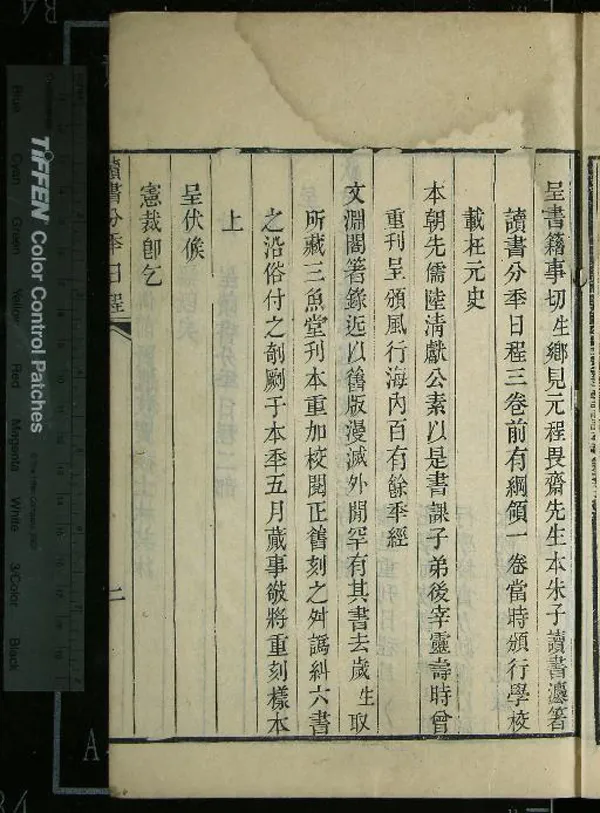 呈書籍事切生鄉見元程畏齋先生本朱子讀書灋著
讀書分秊日程三卷前有綱領一卷當時頒行學校
載在元史
本朝先儒陸清獻公素以是書課子弟後宰靈壽時曾
重刊呈頒風行海內百有餘秊經
文淵閣箸錄近以舊版漫滅外閒罕有其書去歲生取
所藏三魚堂刊本重加校閱正舊刻之舛譌糾六書
之沿俗付之剞劂于本秊五月蕆事敬將重刻樣本
上
呈伏候
憲裁卽乞
讀書分秊日程
二
TIFFEN Color Control Patches
Blue Cyan Green Yellow Red Magenta White 3/Color Black
A